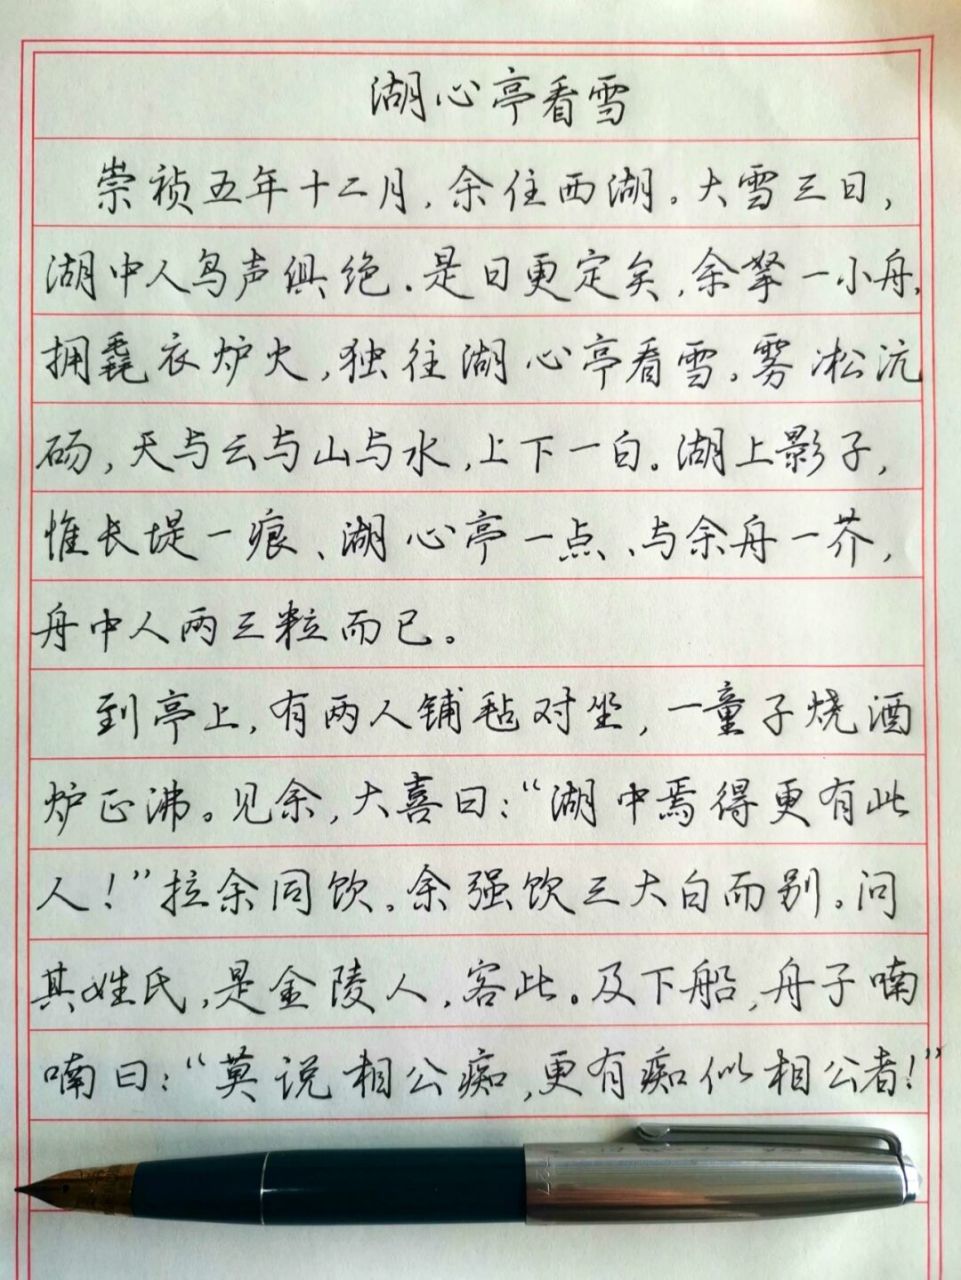 湖心亭看雪
崇祯五年十二月，余住西湖。大雪三日，
湖中人鸟声俱绝.是日更定矣,余拏一小舟,
拥毳衣炉火,独往湖心亭看雪。雾凇沆
砀,天与云与山与水,上下一白。湖上影子,
惟长堤一痕、湖心亭一点、与余舟一芥,
舟中人两三粒而已。
到亭上,有两人铺毡对坐,一童子烧酒
炉正沸。见余,大喜曰:“湖中焉得更有此
人!”拉余同饮。余强饮三大白而别。问
其姓氏,是金陵人,客此。及下船,舟子喃
喃曰:“莫说相公痴,更有痴似相公者!”